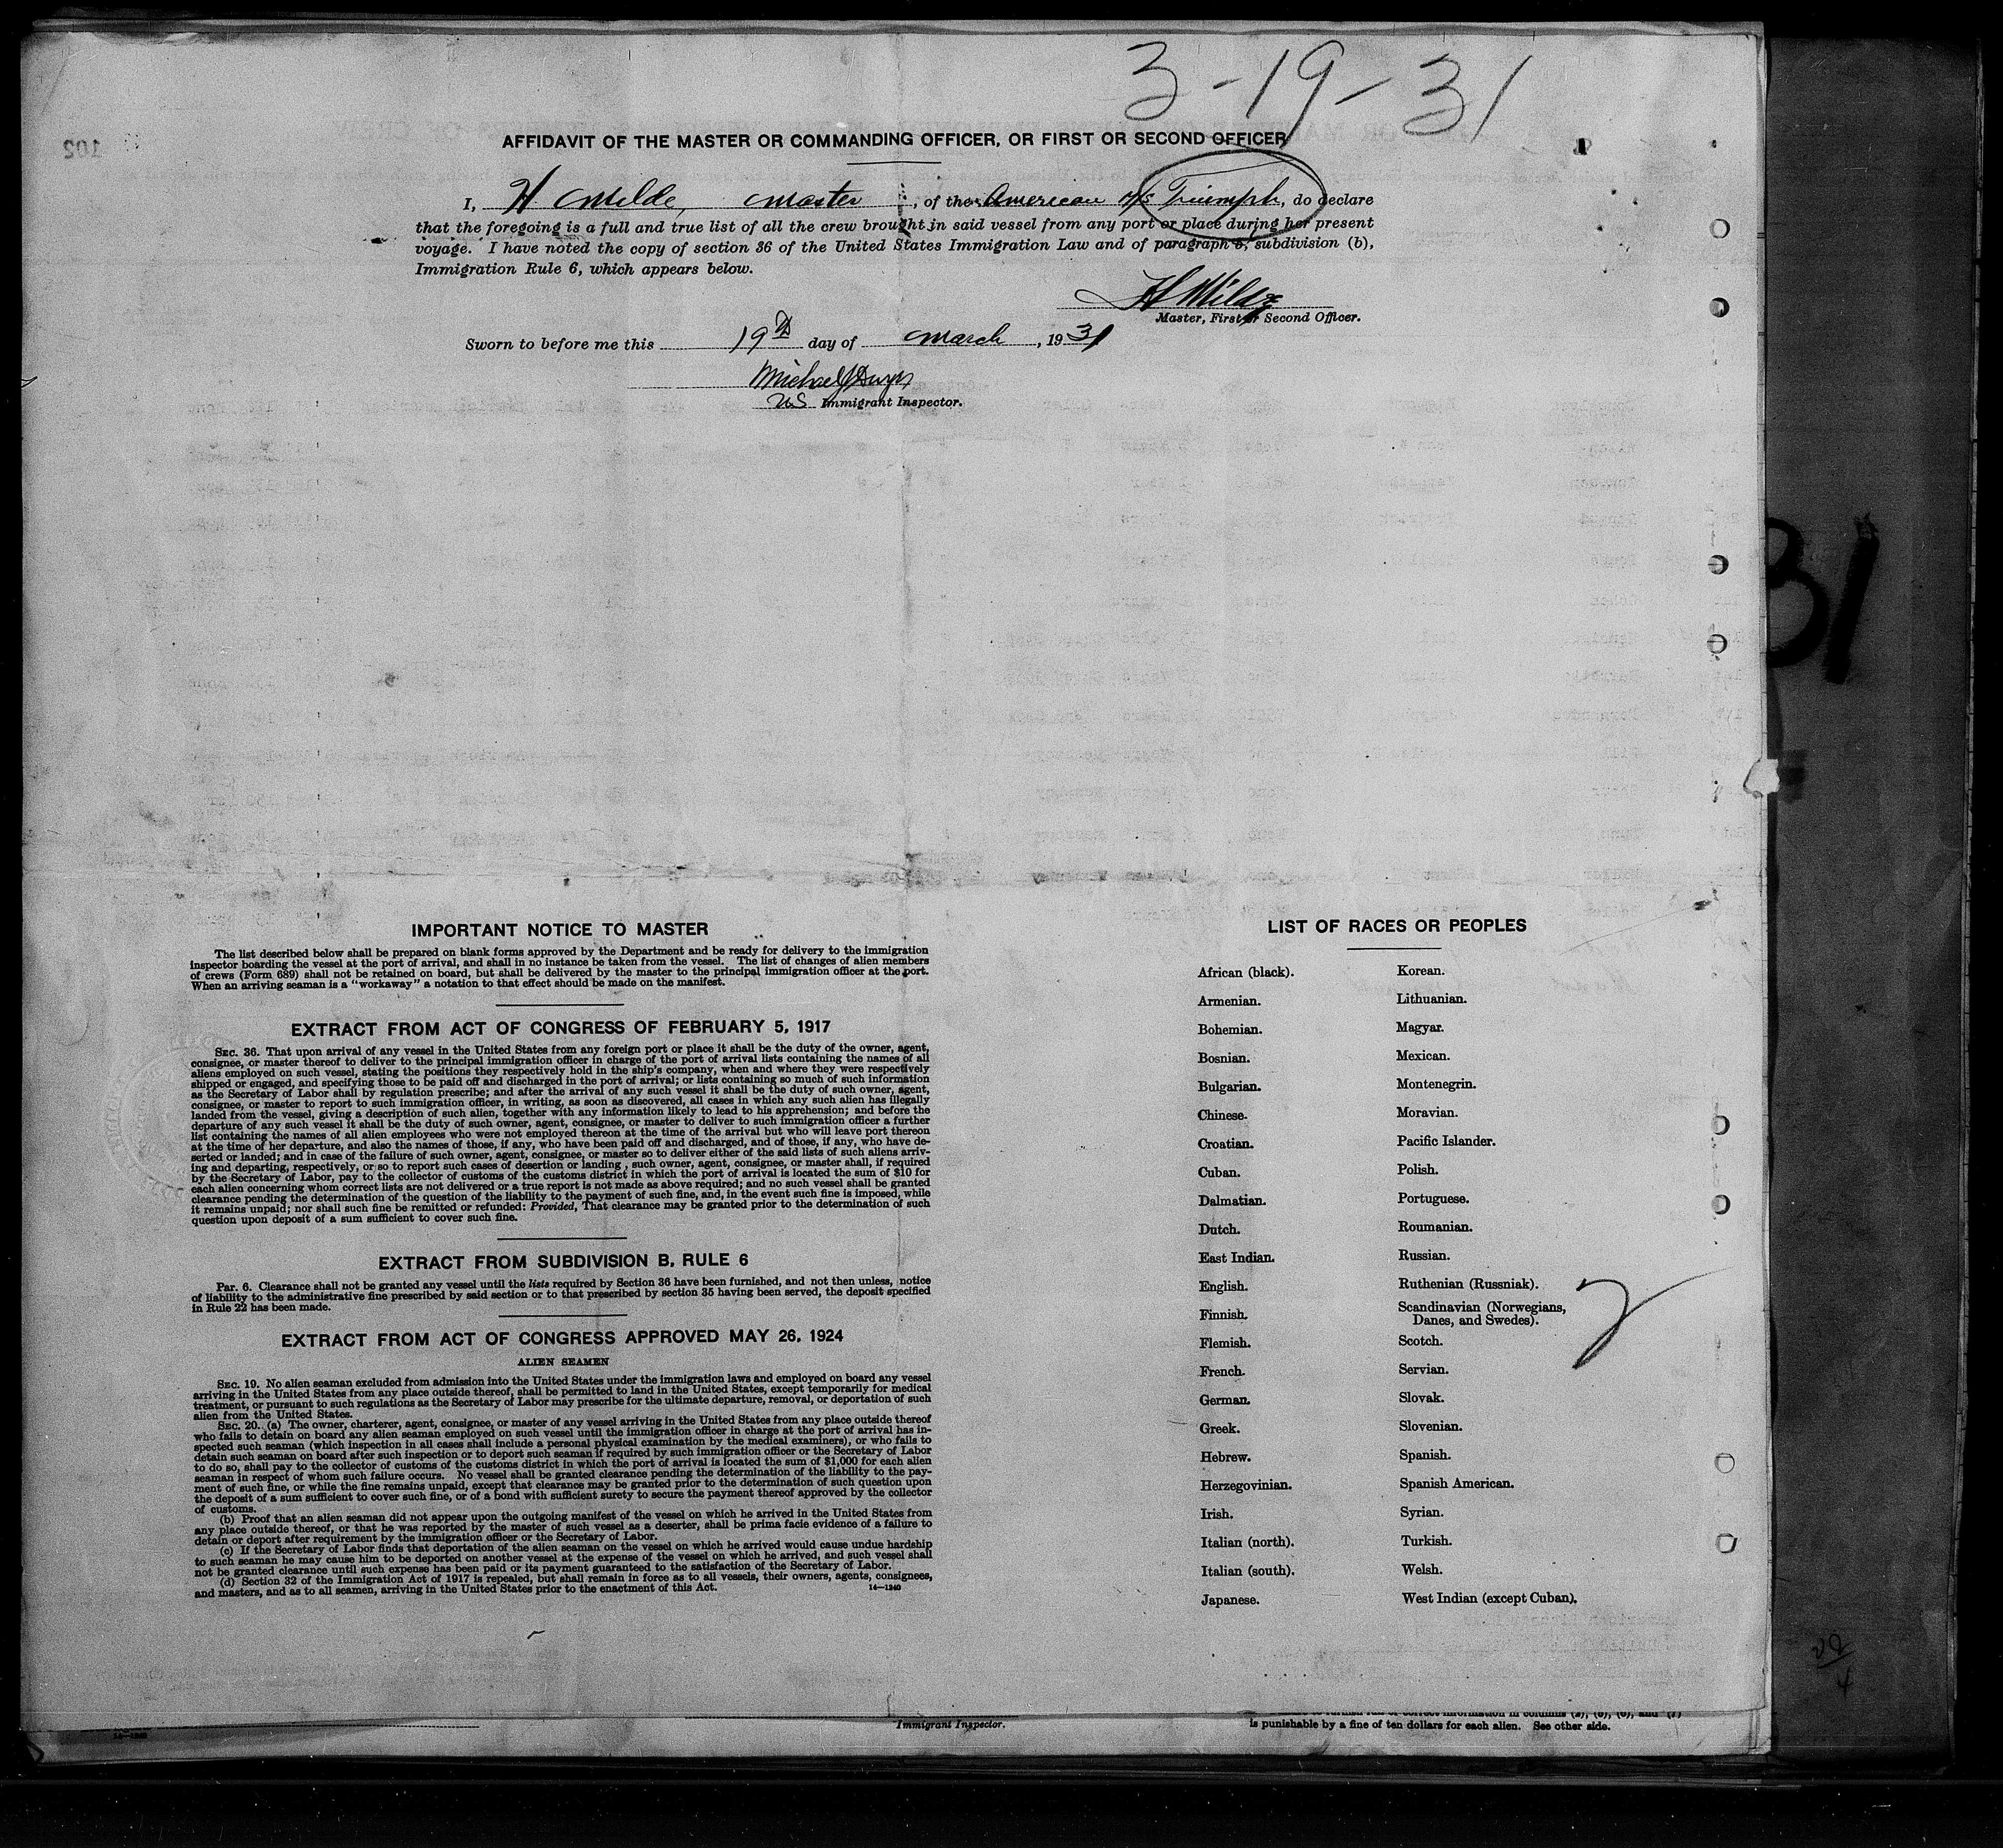 3-19-31
AFFIDAVIT OF THE MASTER OR COMMANDING OFFICER, OR FIRST OR SECOND OFFICER
I, H Milde, Master, of the American M/S Triumph, do declare
that the foregoing is a full and true list of all the crew brought in said vessel from any port or place during her present
voyage. I have noted the copy of section 36 of the United States Immigration Law and of paragraph 6, subdivision (b),
Immigration Rule 6, which appears below.
H Milde
Master, First or Second Officer.
Sworn to before me this 19th day of March, 1931
Michael
US Immigrant Inspector.
IMPORTANT NOTICE TO MASTER
The list described below shall be prepared on blank forms approved by the Department and be ready for delivery to the immigration
inspector boarding the vessel at the port of arrival, and shall in no instance be taken from the vessel. The list of changes of alien members
of crews (Form 689) shall not be retained on board, but shall be delivered by the master to the principal immigration officer at the port.
When an arriving seaman is a "workaway" a notation to that effect should be made on the manifest.
EXTRACT FROM ACT OF CONGRESS OF FEBRUARY 5, 1917
SEC. 36. That upon arrival of any vessel in the United States from any foreign port or place it shall be the duty of the owner, agent,
consignee, or master thereof to deliver to the principal immigration officer in charge of the port of arrival lists containing the names of all
aliens employed on such vessel, stating the positions they respectively hold in the ship's company, when and where they were respectively
shipped or engaged, and specifying those to be paid off and discharged in the port of arrival; or lists containing so much of such information
as the Secretary of Labor shall by regulation prescribe; and after the arrival of any such vessel it shall be the duty of such owner, agent,
consignee, or master to report to such immigration officer, in writing, as soon as discovered, all cases in which any such alien has illegally
landed from the vessel, giving a description of such alien, together with any information likely to lead to his apprehension; and before the
departure of any such vessel it shall be the duty of such owner, agent, consignee, or master to deliver to such immigration officer a further
list containing the names of all alien employees who were not employed thereon at the time of the arrival but who will leave port thereon
at the time of her departure, and also the names of those, if any, who have been paid off and discharged, and of those, if any, who have de-
serted or landed; and in case of the failure of such owner, agent, consignee, or master so to deliver either of the said lists of such aliens arriv-
ing and departing, respectively, or so to report such cases of desertion or landing, such owner, agent, consignee, or master shall, if required
by the Secretary of Labor, pay to the collector of customs of the customs district in which the port of arrival is located the sum of $10 for
each alien concerning whom correct lists are not delivered or a true report is not made as above required; and no such vessel shall be granted
clearance pending the determination of the question of the liability to the payment of such fine, and, in the event such fine is imposed, while
it remains unpaid; nor shall such fine be remitted or refunded: Provided, That clearance may be granted prior to the determination of such
question upon deposit of a sum sufficient to cover such fine.
EXTRACT FROM SUBDIVISION B, RULE 6
Par. 6. Clearance shall not be granted any vessel until the lists required by Section 36 have been furnished, and not then unless, notice
of liability to the administrative fine prescribed by said section or to that prescribed by section 35 having been served, the deposit specified
in Rule 22 has been made.
EXTRACT FROM ACT OF CONGRESS APPROVED MAY 26, 1924
ALIEN SEAMEN
SEC. 19. No alien seaman excluded from admission into the United States under the immigration laws and employed on board any vessel
arriving in the United States from any place outside thereof, shall be permitted to land in the United States, except temporarily for medical
treatment, or pursuant to such regulations as the Secretary of Labor may prescribe for the ultimate departure, removal, or deportation of such
alien from the United States.
SEC. 20. (a) The owner, charterer, agent, consignee, or master of any vessel arriving in the United States from any place outside thereof
who fails to detain on board any alien seaman employed on such vessel until the immigration officer in charge at the port of arrival has in-
spected such seaman (which inspection in all cases shall include a personal physical examination by the medical examiners), or who fails to
detain such seaman on board after such inspection or to deport such seaman if required by such immigration officer or the Secretary of Labor
to do so, shall pay to the collector of customs of the customs district in which the port of arrival is located the sum of $1,000 for each alien
seaman in respect of whom such failure occurs. No vessel shall be granted clearance pending the determination of the liability to the pay-
ment of such fine, or while the fine remains unpaid, except that clearance may be granted prior to the determination of such question upon
the deposit of a sum sufficient to cover such fine, or of a bond with sufficient surety to secure the payment thereof approved by the collector
of customs.
(b) Proof that an alien seaman did not appear upon the outgoing manifest of the vessel on which he arrived in the United States from
any place outside thereof, or that he was reported by the master of such vessel as a deserter, shall be prima facie evidence of a failure to
detain or deport after requirement by the immigration officer or the Secretary of Labor.
(c) If the Secretary of Labor finds that deportation of the alien seaman on the vessel on which he arrived would cause undue hardship
to such seaman he may cause him to be deported on another vessel at the expense of the vessel on which he arrived, and such vessel shall
not be granted clearance until such expense has been paid or its payment guaranteed to the satisfaction of the Secretary of Labor.
(d) Section 32 of the Immigration Act of 1917 is repealed, but shall remain in force as to all vessels, their owners, agents, consignees,
and masters, and as to all seamen, arriving in the United States prior to the enactment of this Act.
14—1240
LIST OF RACES OR PEOPLES
African (black).
Armenian.
Bohemian.
Bosnian.
Bulgarian.
Chinese.
Croatian.
Cuban.
Dalmatian.
Dutch.
East Indian.
English.
Finnish.
Flemish.
French.
German.
Greek.
Hebrew.
Herzegovinian.
Irish.
Italian (north).
Italian (south).
Japanese.
Korean.
Lithuanian.
Magyar.
Mexican.
Montenegrin.
Moravian.
Pacific Islander.
Polish.
Portuguese.
Roumanian.
Russian.
Ruthenian (Russniak).
Scandinavian (Norwegians,
Danes, and Swedes).
Scotch.
Servian.
Slovak.
Slovenian.
Spanish.
Spanish American.
Syrian.
Turkish.
Welsh.
West Indian (except Cuban).
2
31
Immigrant Inspector.
is punishable by a fine of ten dollars for each alien. See other side.